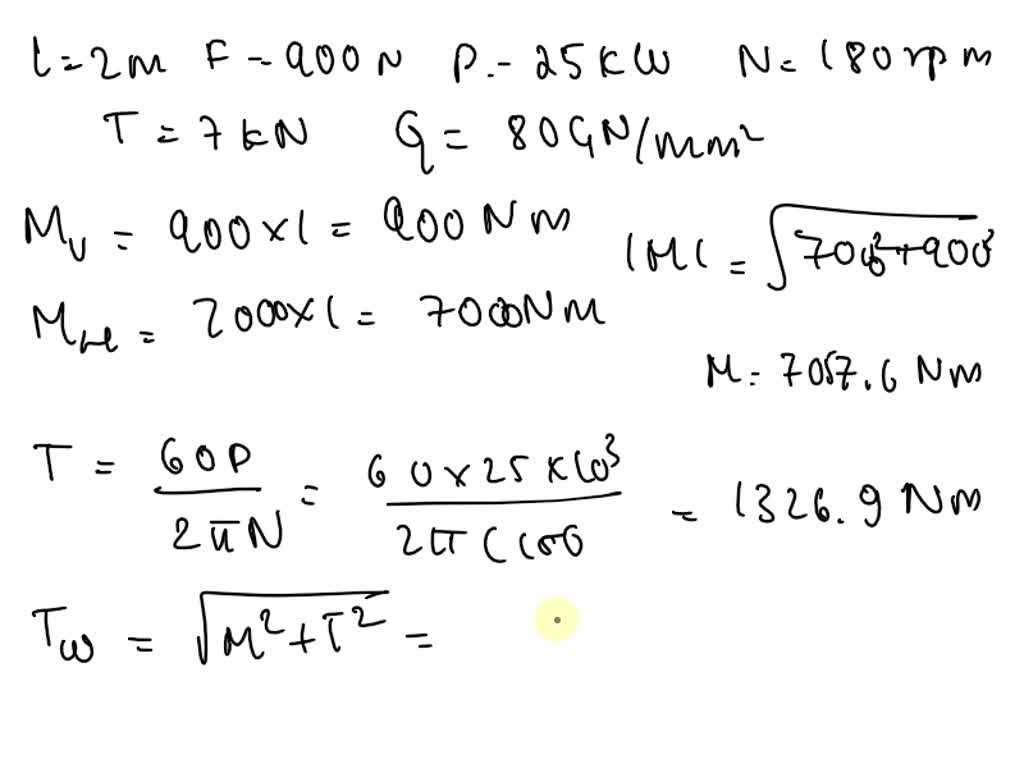 l = 2m F - 900 N P. - 25 kW N = 180 rpm
T = 7 kN G = 80 GN/mm²
M_v = 900 × 1 = 900 Nm
|M| = √(7000² + 900²)
M_H = 7000 × 1 = 7000 Nm
M = 7057.6 Nm
T = 60P / 2πN = 60 × 25 × 10³ / 2π ( = 1326.9 Nm
T_w = √(M² + T²) =